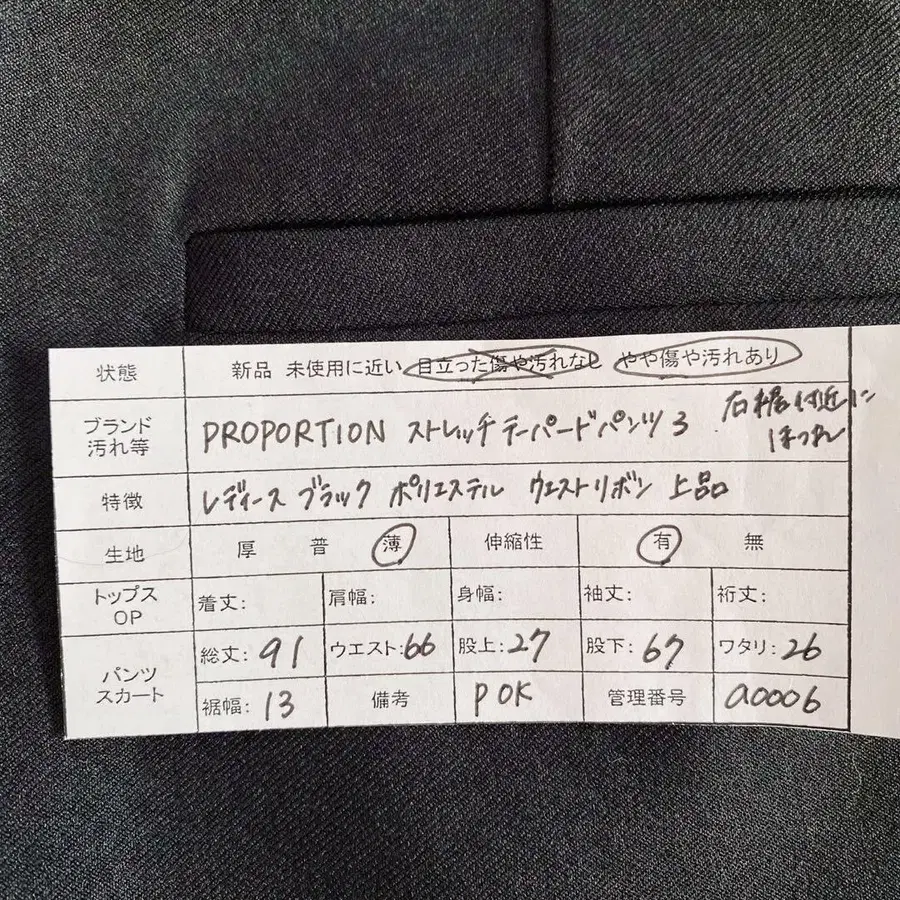 状態 新品 未使用に近い 目立った傷や汚れなし やや傷や汚れあり
ブランド 汚れ等 PROPORTION ストレッチテーパードパンツ 3 右裾付近に ほつれ
特徴 レディース ブラック ポリエステル ウエストリボン 上品
生地 厚 普 薄 伸縮性 有 無
トップス OP 着丈: 肩幅: 身幅: 袖丈: 裄丈:
パンツ スカート 総丈:91 ウエスト:66 股上:27 股下:67 ワタリ:26
裾幅:13 備考 P OK 管理番号 a0006